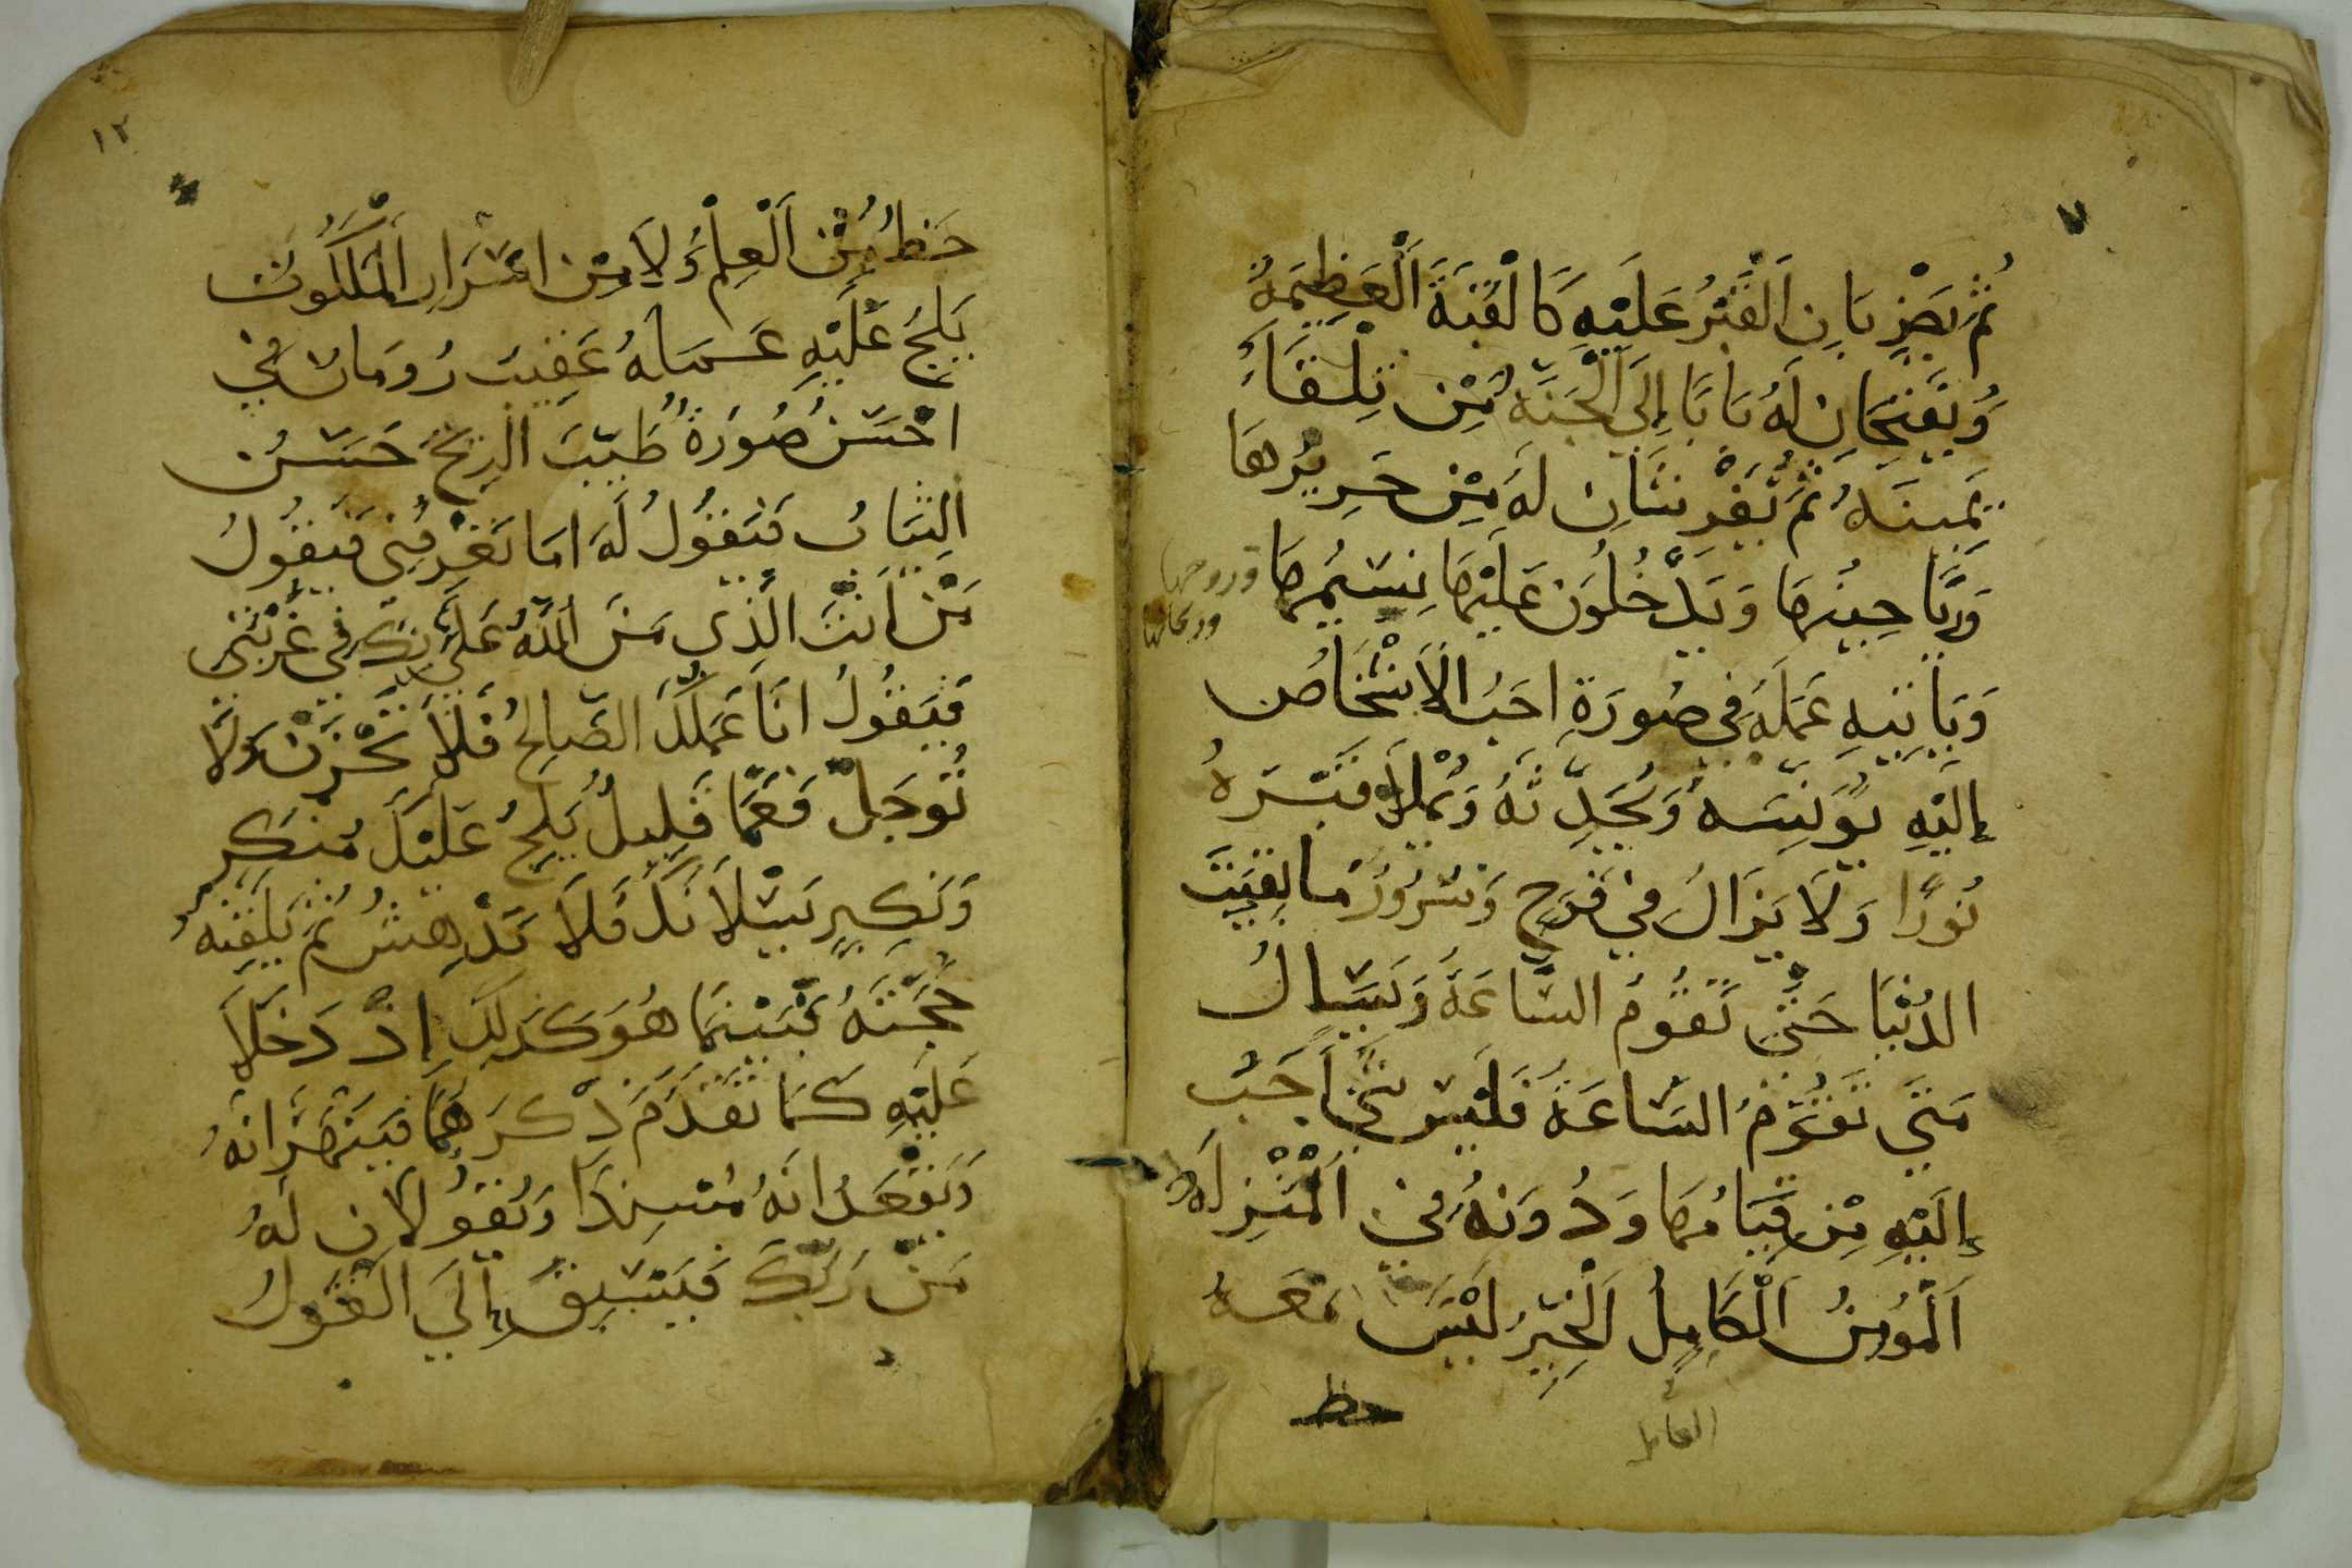 ثُمَّ يَضْرِبَانِ الْقَبْرُ عَلَيْهِ كَالْقُبَّةَ الْعَظِيمَةُ
وَيَفْتَحَانِ لَهُ بَابًا إِلَى الْجَنَّةِ مِنْ تِلْقَاءَ
يَمِينَهُ ثُمَّ يَفْرِشَانِ لَهُ مِنْ حَرِيرِهَا
وَرَيَاحِينِهَا وَيَدْخُلُونَ عَلَيْهَا نِسَيْمِهَا
وروحها
وريحانها
وَيَأْتِيهِ عَمَلَهُ فِي صُورَةِ احَبُ الْأَشْخَاصُ
إِلَيْهِ يُونِسَهُ وَيُحَدِّثَهُ وَيُمْلَأُ قَبْرَهُ
نُورًا وَلَا يَزَالُ فِي فَرَحٍ وَسُرُورُ مَا بَقِيَتَ
الدُنْيَا حَتَّى تَقُومُ السَّاعَةُ وَيَسَالُ
مَتَى تَقُومُ السَّاعَةُ فَلَيْسَ شَيْءٌ احَبْ
إِلَيْهِ مِنْ قِيَامُهَا وَدُونَهُ فِي الْمَنْزِلَه
اَلْمُومِنُ الْكَامِلُ الْخَيِّرُ لَيْسَ مَعَهُ
حظ
العامل
١٢
حَظُ مِنَ الْعِلْمُ وَلَا مِنْ اسْرَارِ الْمَلَكُوتُ
يَلِجُ عَلَيْهِ عَمَلَهُ عَقِيبَ رُومَانَ فِي
احْسَنُ صُورَةٌ طَيِّبَ الرِّيحُ حَسَنُ
الثِيَابُ فَيَقُولُ لَهُ امَا تَعْرِفُنِي فَيَقُولُ
مَنْ اَنْتَ الَّذِي مَنَّ اللَّهُ عَلَيَّ بِكَ فِي غُرْبَتِي
فَيَقُولُ انَا عَمَلُكَ الصَّالِحُ فَلَا تَحْزَنْ وَلَا
تُوجَلْ فَعَمَّا قَلِيلٌ يَلِجُ عَلَيْكَ مُنْكَرِ
وَنَكِيرٍ يَسْلَانَكَ فَلَا تَدْهِشُ ثُمَّ يُلَقِّنَهُ
حُجَّتَهُ فَبَيْنَمَا هُوَ كَذَلِكَ إِذْ دَخَلَا
عَلَيْهِ كَمَا تَقَدَّمَ ذِكْرَهُمَا فَيَنْهَرَانَهُ
وَيَقْعَدَانَهُ مُسْنِدًا وَيَقُولَانِ لَهُ
مَنْ رَبُّكَ فَيَسْبِقُ إِلَى الْقَوْلُ